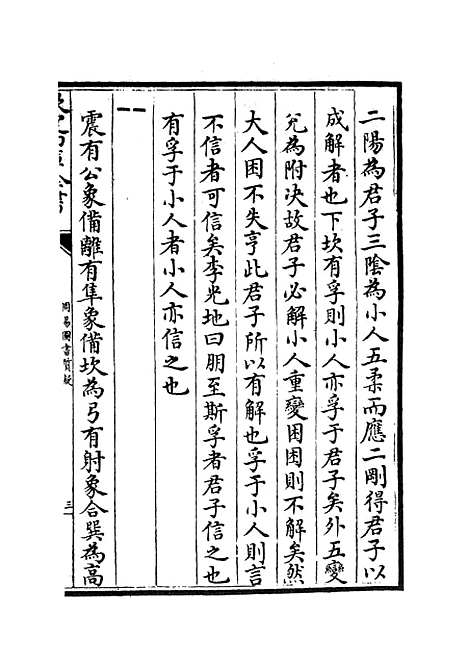 二陽為君子三陰為小人五柔而應二剛得君子以
成解者也下坎有孚則小人亦孚于君子矣外五變
兌為附決故君子必解小人重變困困則不解矣然
大人困不失亨此君子所以有解也孚于小人則言
不信者可信矣李光地曰朋至斯孚者君子信之也
有孚于小人者小人亦信之也
⚋
震有公象備離有隼象備坎為弓有射象合巽為高
周易圖書質疑
三